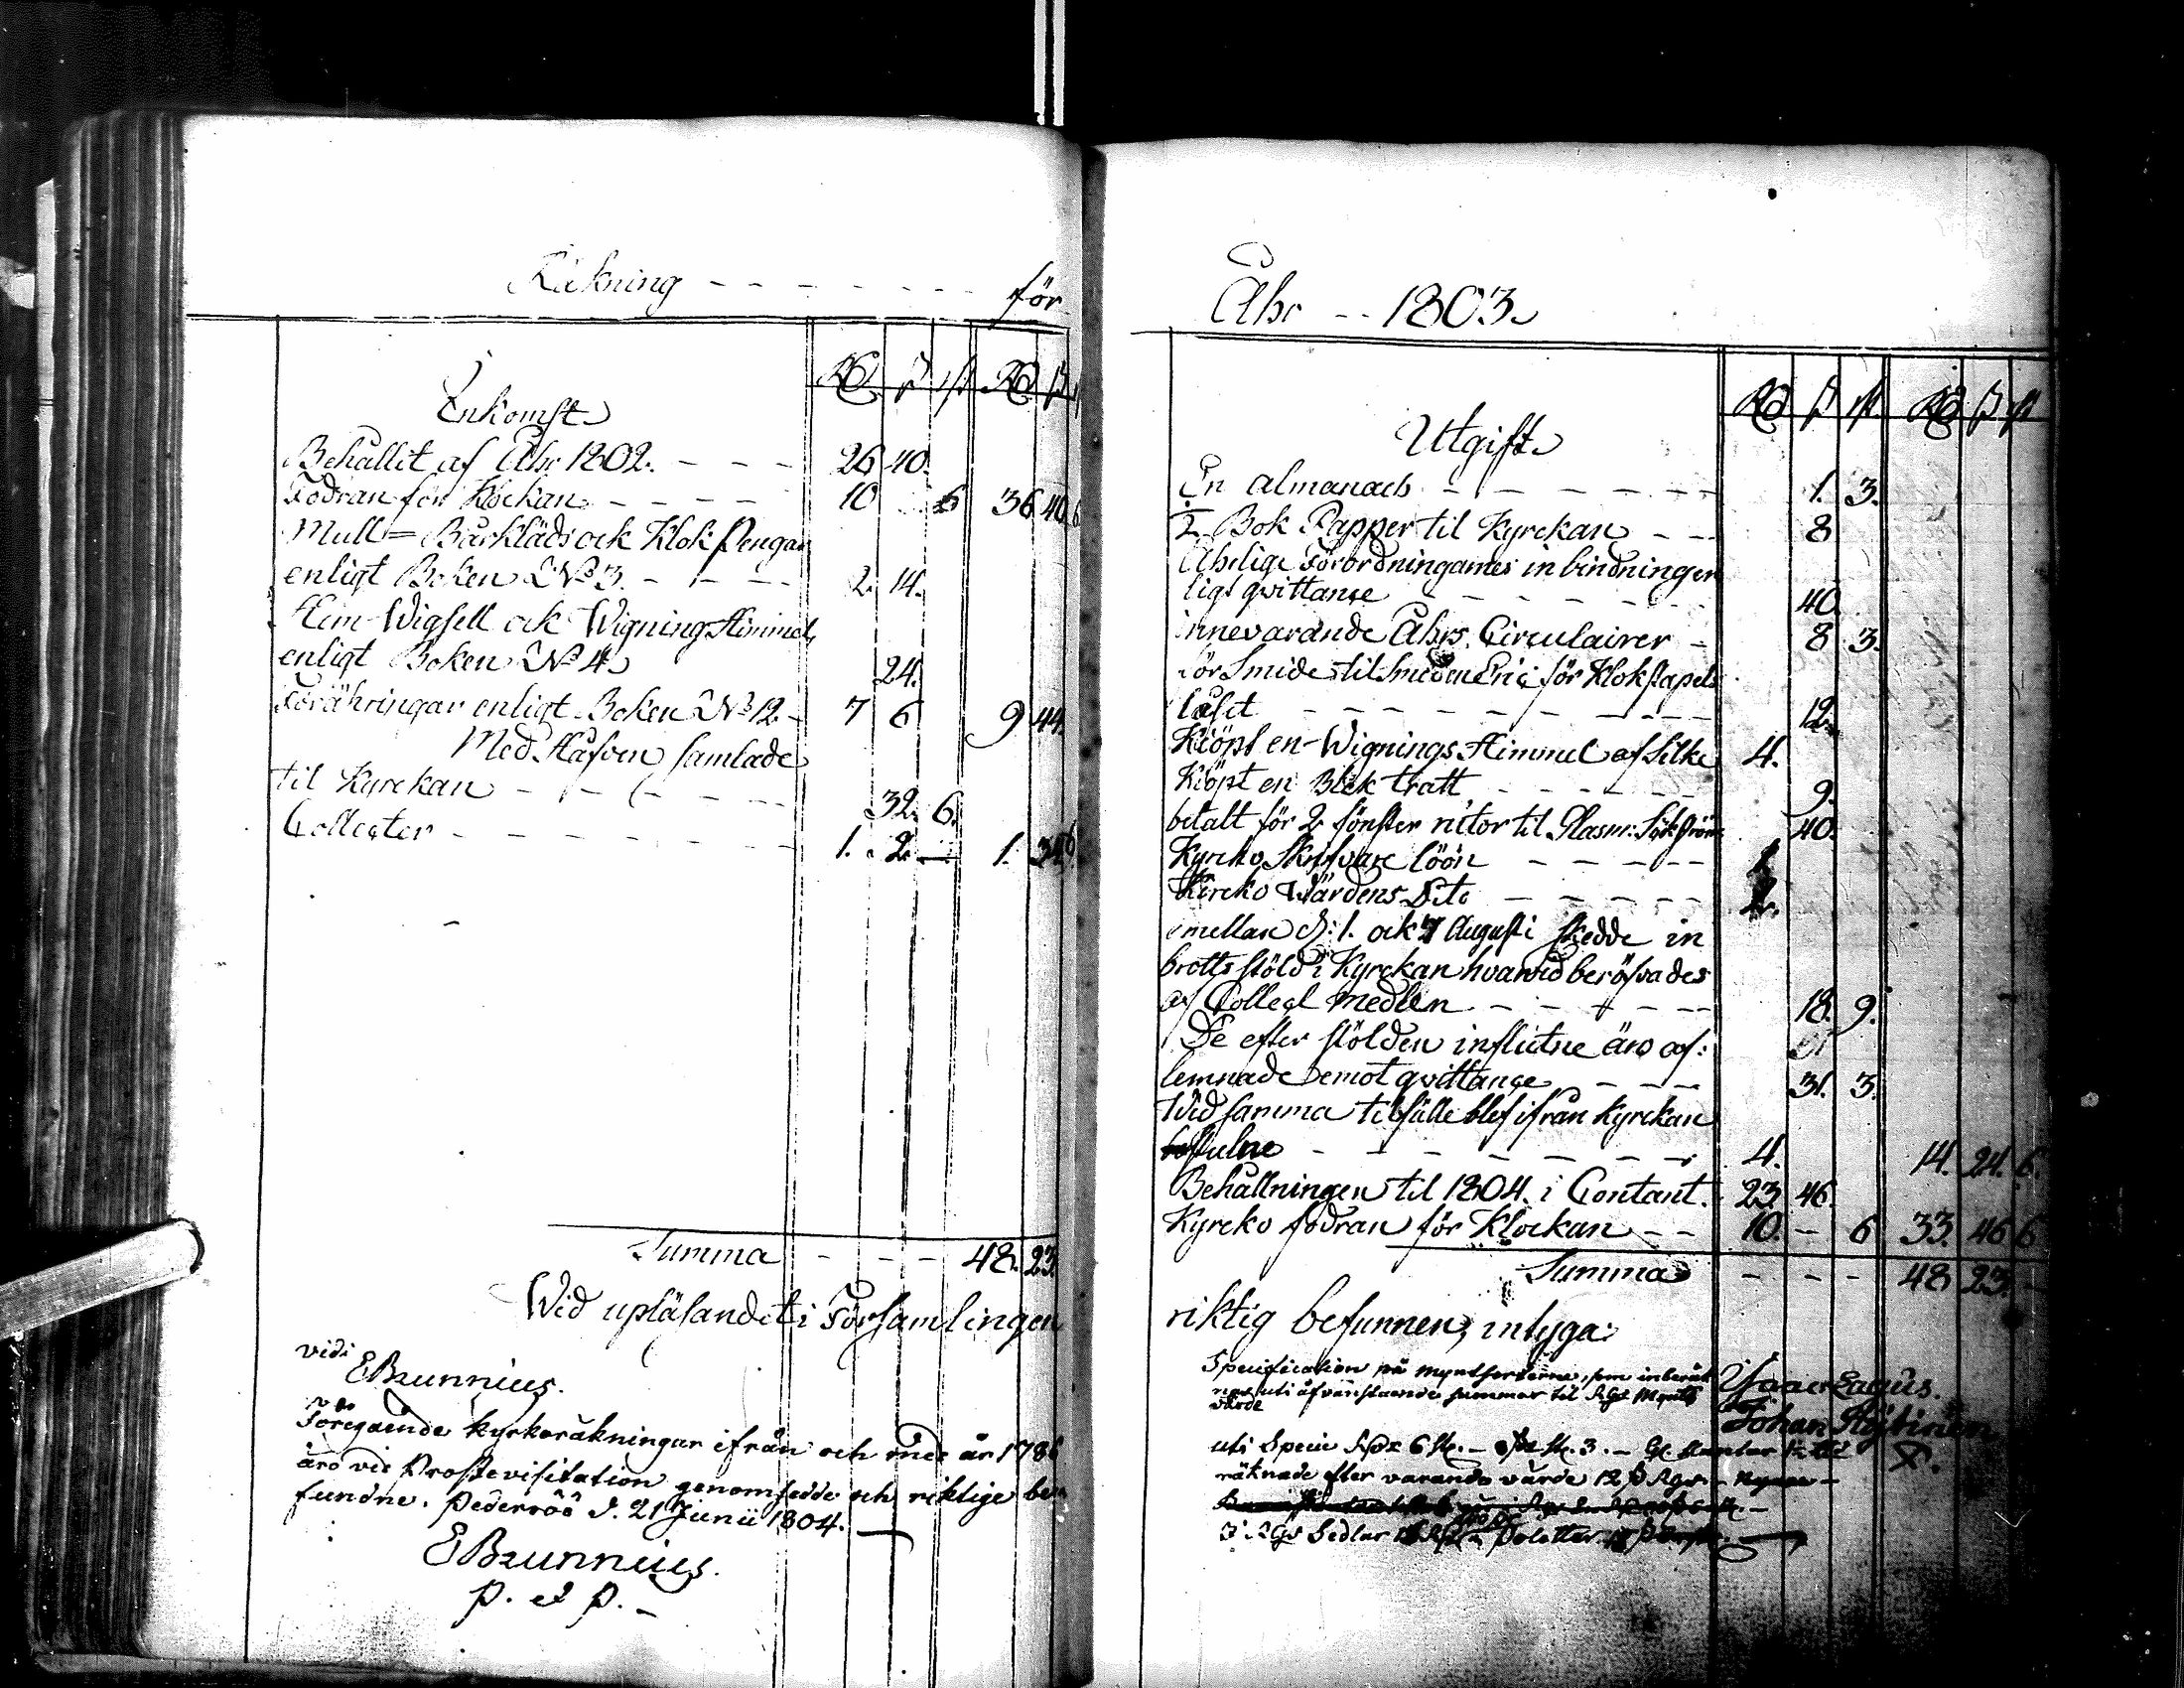 Räkning - - - - - - - för
Rd ß rst Rd ß
Inkomst
Behållit af Åhr 1802. - - - 26 40.
Fodran för Klockan - - - - 10 6 36 40 6
Mull= Bårkläds ock Klok Pengar
enligt Boken No 3. - - - - 2. 14.
Him-Wigsell ock Wignings Himmel
enligt Boken No 4. 24.
Förähringar enligt Boken No 12. - 7 6 9 44.
Med Håfven samlade
til Kyrckan - - - - - - 32. 6.
Collecter - - - - - - - 1. 2. — 1. 34 6
Summa - - - 48. 23.
Wid upläsandet i Församlingen
vidi
EBrunnius.
Föregående kyrkoräkningar ifrån och med år 1786
äro vid Prostevisitation genomsedde och riktige be-
fundne. Pedersöö d. 21 Junii 1804. —
EBrunnius.
P. et P. -
Åhr - - 1803.
Rd ß rst Rd ß rst
Utgift
En almanach - - - - - - 1. 3.
1/2 Bok Papper til Kyrckan - - - 8
Åhrlige Förordningarnes inbindning en
ligt qvittance - - - - - - 40.
innevarande Åhrs Circulairer - 8 3.
för Smide til Smeden Eric för Klokstapels
låset - - - - - - - 12.
Kiöpt en Wignings Himmel af Silke 4.
Kiöpt en Blek tratt - - - - - 9.
betalt för 2 fönster rutor til Glasm: 40.
Kyrcko Skrifvare löön - - - - -
Kyrcko Wärdens Dito - - - - -
emellan d: 1. ock 7 Augusti skedde in
brotts stöld i Kyrckan hvarvid beröfvades
af Collect medlen - - - - - 18. 9.
De efter stölden influtne äro af:
lemnade emot qvittance - - - 31. 3.
Wid samma tilfälle blef ifrån Kyrckan
stulne - - - - - - - 4. 14. 24. 6.
Behållningen til 1804. i Contant. 23 46.
Kyrcko fodran för Klockan - - 10. - 6 33. 46 6
Summa - - - 48 23. -
riktig befunnen, intyga:
Specification på myntsorterne, som inberäk
nas uti åfvanstående summor til RGs Mynts
värde
Isaac Lagus.
Johan
uti Specie Rdr 6 st. - st. 3. -
räknade efter varande värde 12 ß Rgs -
i RGs Sedlar Poletter